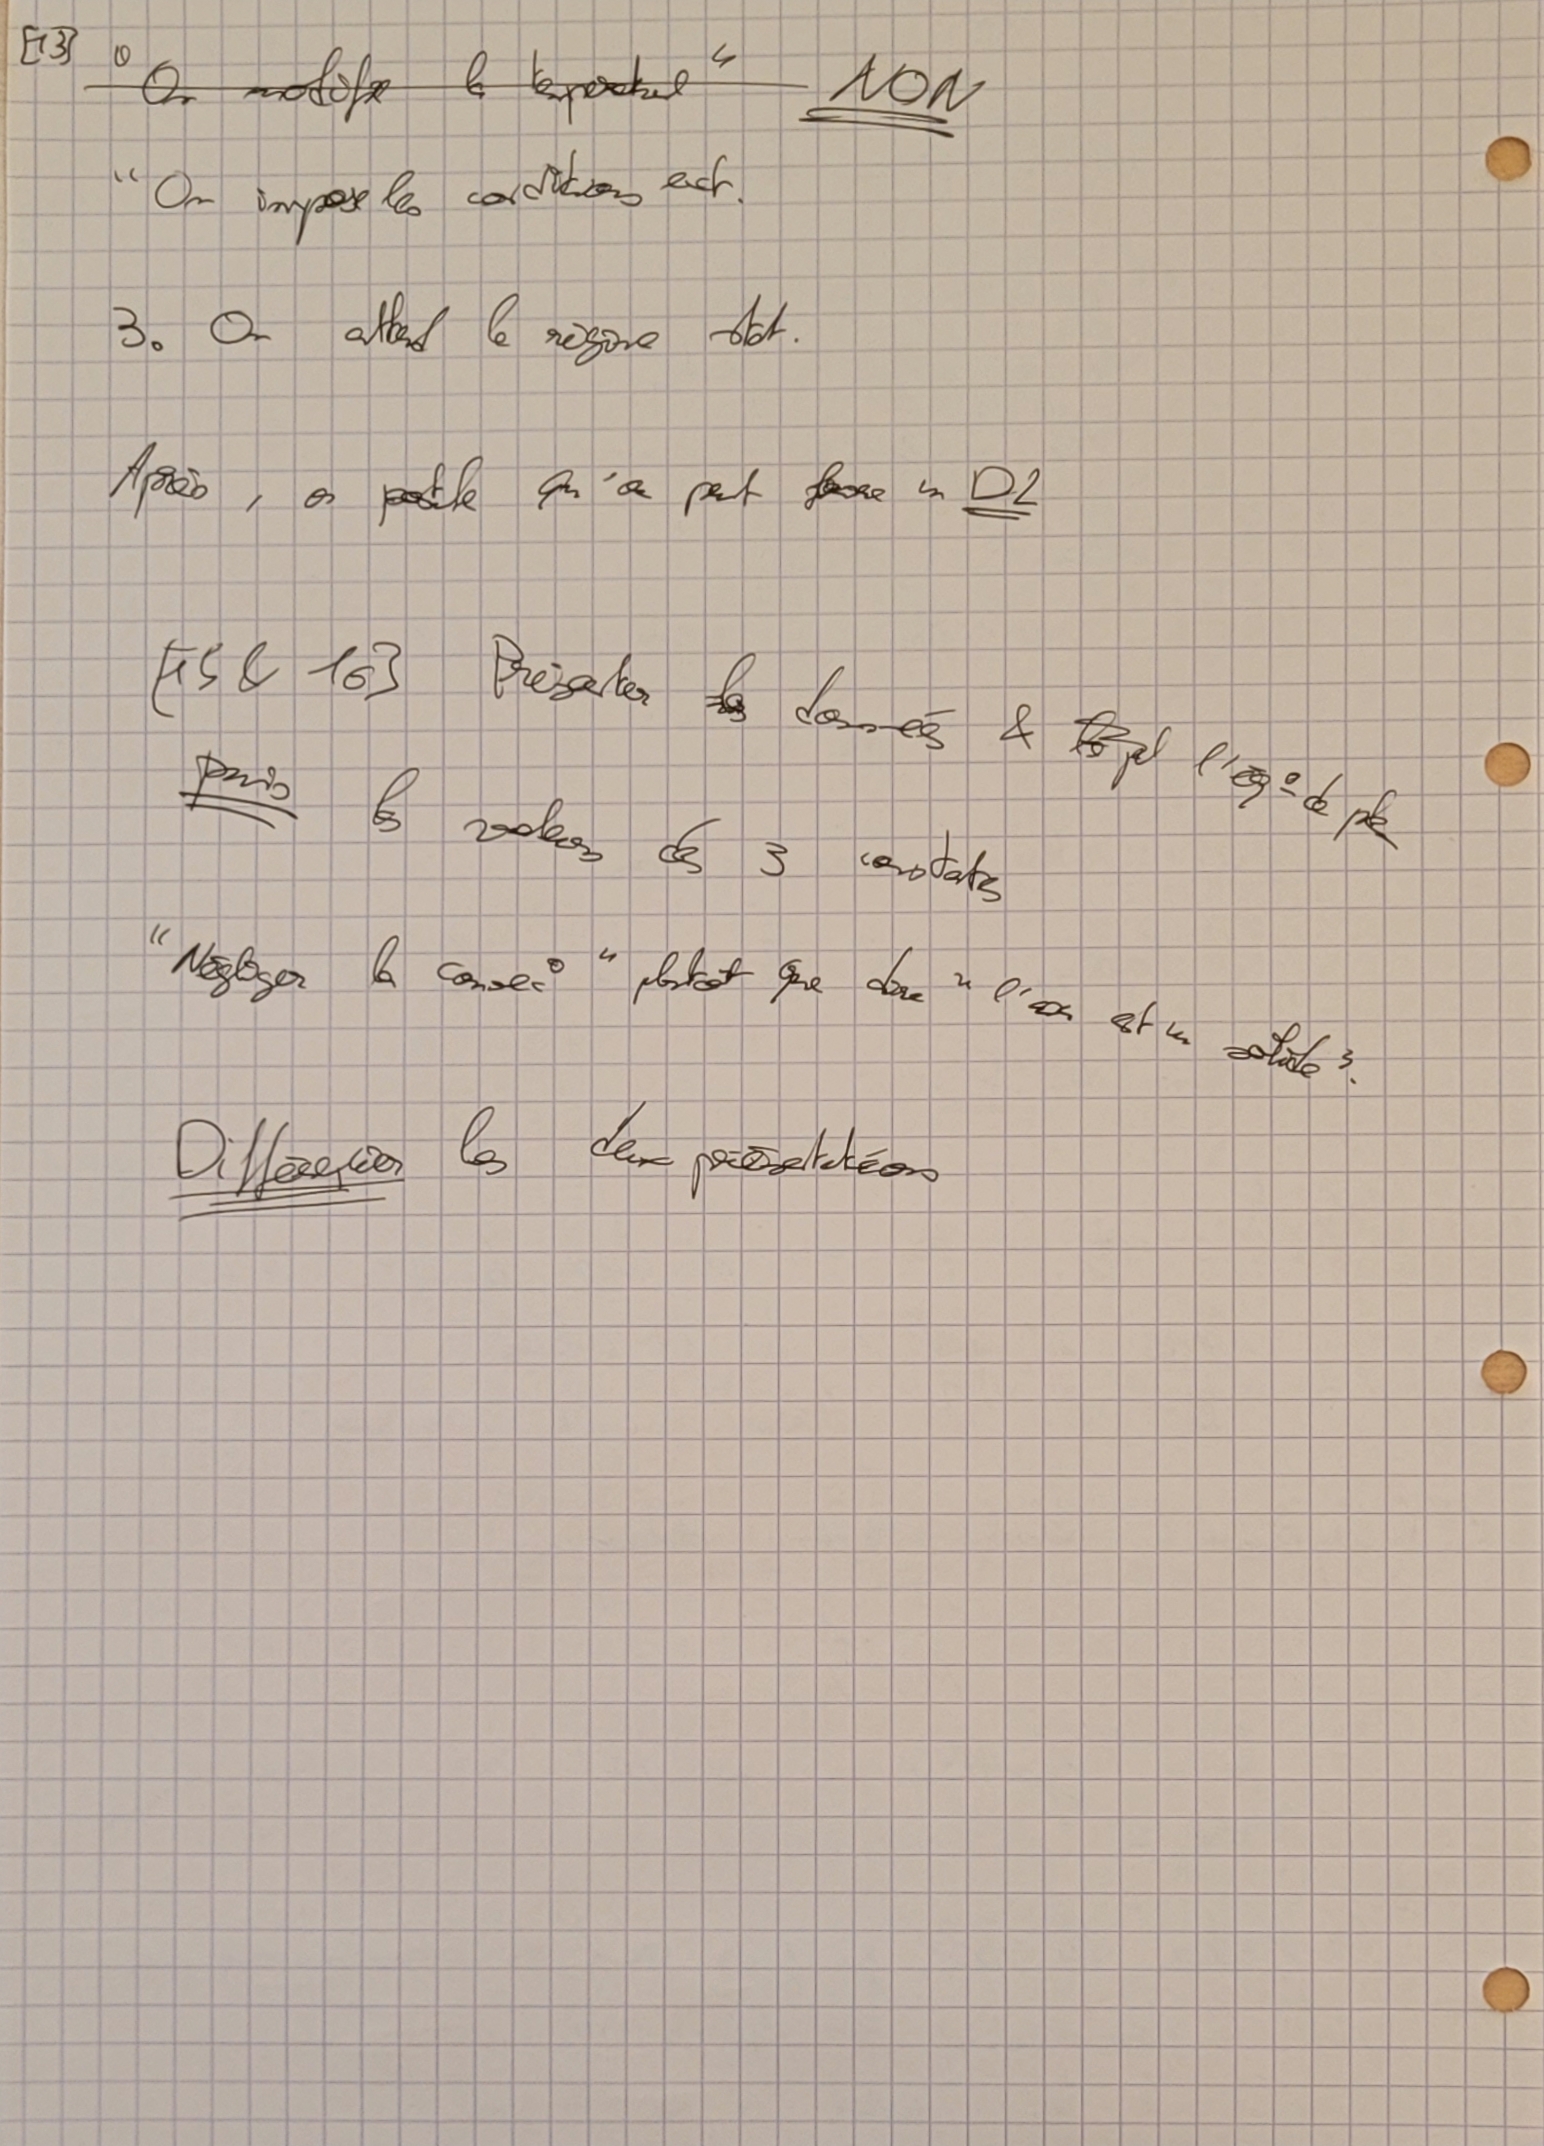 [13] "On modifie la température" NON
"On impose les conditions ext.
3. On attend le régime stat.
Après, on postule qu'on peut faire un DL
[15 & 16] Présenter les données & l'éq° de
puis les valeurs des 3 constantes
"Négliger la convec°" plutôt que dire "l'eau est un solide".
Différencier les deux présentations